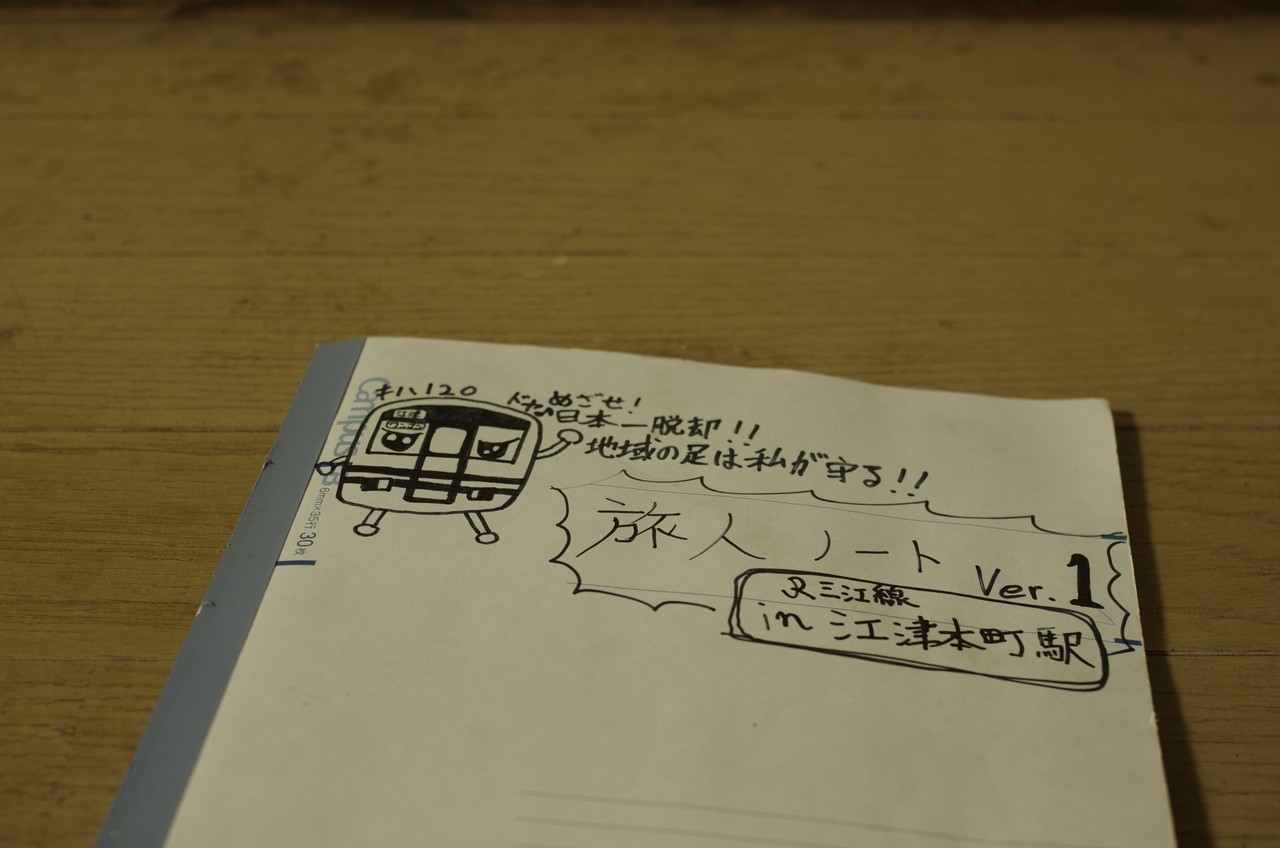 Campus
6mm×35行 30枚
キハ120
めざせ!
ドな日本一脱却!!
地域の足は私が守る!!
旅人ノート Ver.1
JR三江線
in 江津本町駅